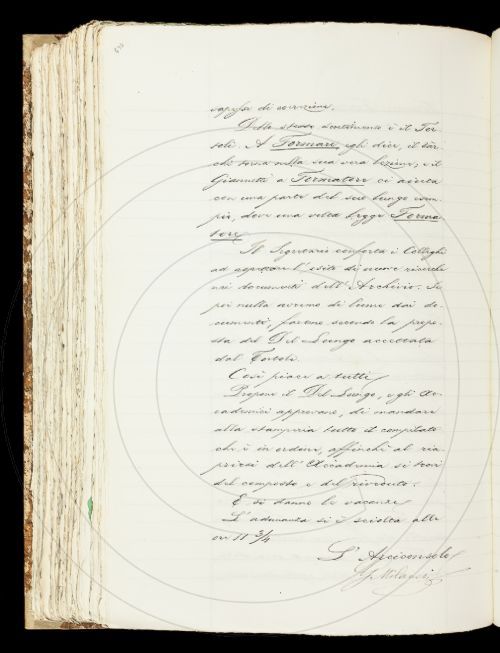 capaci di correzioni.
Dello stesso sentimento è il Tor
toli. A Formare, egli dice, il
chi torna nella sua vera lezione, e il
Giannetti a Fermatore ci aiuta
con una parte del suo lungo com
pito, dove una volta legge Ferma
tore.
Il Segretario conforta i Colleghi
ad aspettare l'esito di nuove ricerche
nei documenti dell'Archivio. Se
poi nulla avremo di lume dai do-
cumenti, faremo secondo la propo-
sta del Del Lungo accettata
dal Tortoli.
Così piace a tutti.
Propone il Del Lungo, e gli Ac-
cademici approvano, di mandare
alla stamperia tutto il compilato
che è in ordine, affinchè al ria-
prirsi dell'Accademia si trovi
del composto e del riveduto.
E si danno le vacanze.
L'adunanza si è sciolta alle
ore 11 3/4
L'Arciconsolo
G. Milanesi